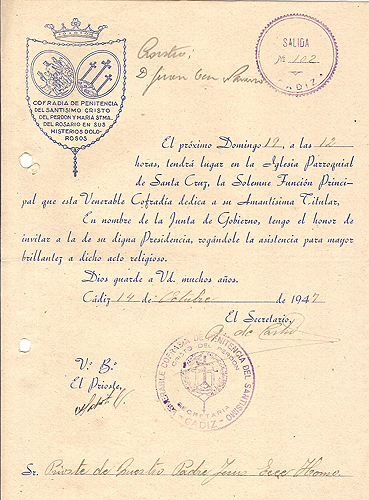 COFRADIA DE PENITENCIA
DEL SANTISIMO CRISTO
DEL PERDON Y MARIA STMA.
DEL ROSARIO EN SUS
MISTERIOS DOLO-
ROSOS
SALIDA
Nº 102
CADIZ
D. Juan
El próximo Domingo 19, a las 12
horas, tendrá lugar en la Iglesia Parroquial
de Santa Cruz, la Solemne Función Princi-
pal que esta Venerable Cofradía dedica a su Amantísima Titular.
En nombre de la Junta de Gobierno, tengo el honor de
invitar a la de su digna Presidencia, rogándole la asistencia para mayor
brillantez a dicho acto religioso.
Dios guarde a Vd. muchos años.
Cádiz 14 de Octubre de 1947
El Secretario,
V.º B.º
El Prioste,
VENERABLE COFRADIA DE PENITENCIA DEL SANTISIMO
CRISTO DEL PERDON
SECRETARIA
CADIZ
Sr. Prioste de Nuestro Padre Jesus Ecce Homo.